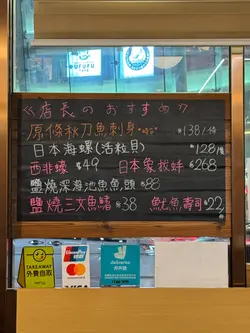 DOFUFU
<店長のおすすめ7
原條秋刀魚刺身*時令 $138/條
日本海螺(活粒貝) $128/個
西非蠔 $49 日本象拔蚌 $268
鹽燒深海池魚魚頭 $88
鹽燒三文魚鰭 $38 魷魚壽司 $22
TAKEAWAY
外賣自取
VISA
deliveroo
戶戶送